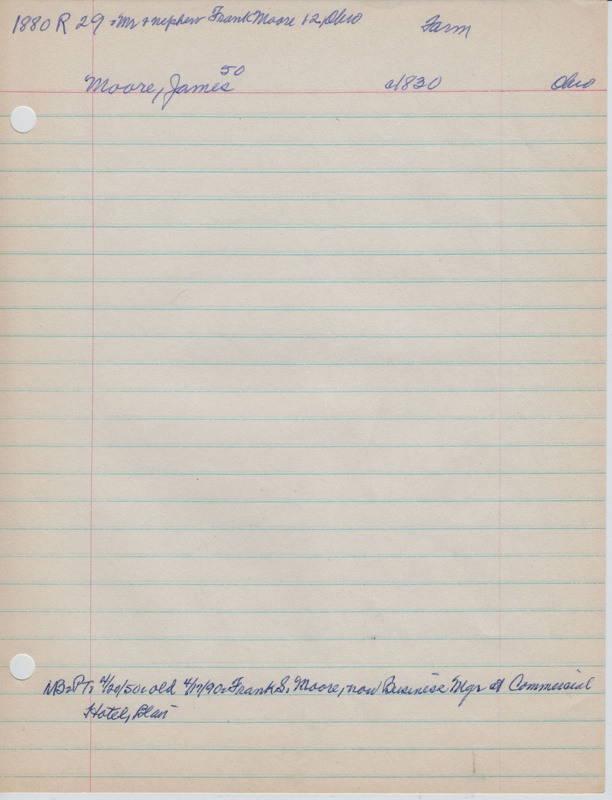 1880 R 29 + Mr + nephew Frank Moore 12, Ohio Farm
50
Moore, James c1830 Ohio
NB=PT= 4/20/50: old 4/17/90: Frank S. Moore, now Business Mgr at Commercial
Hotel, Blair